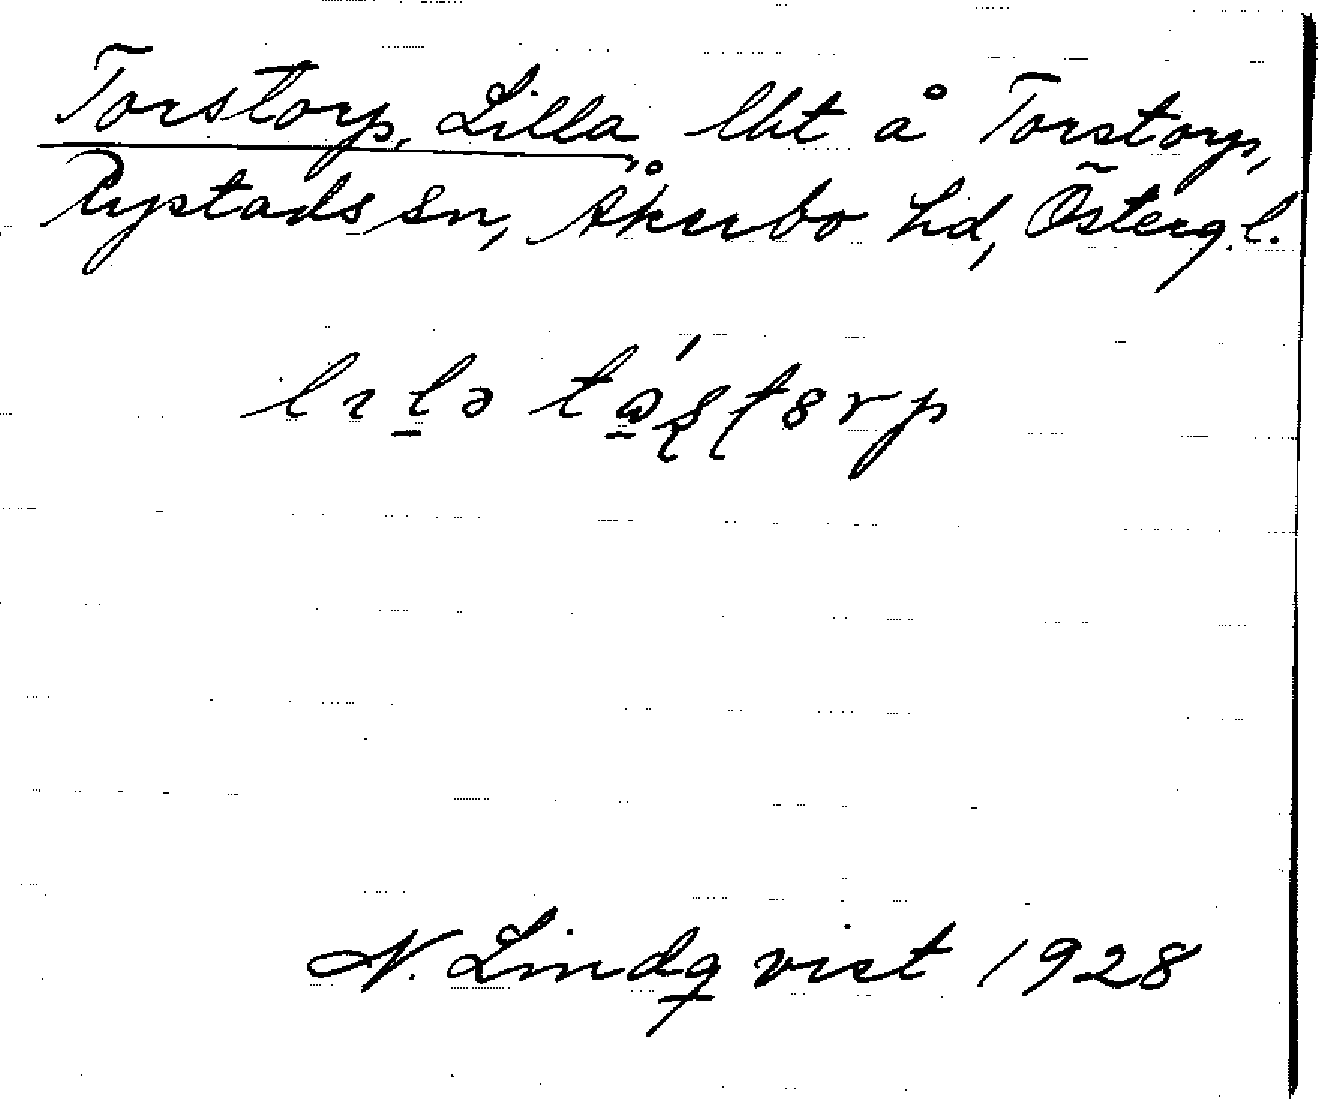 Torstorp, Lilla, lht å Torstorp,
Rystads sn, Åkerbo hd, Österg.l.
N. Lindqvist 1928